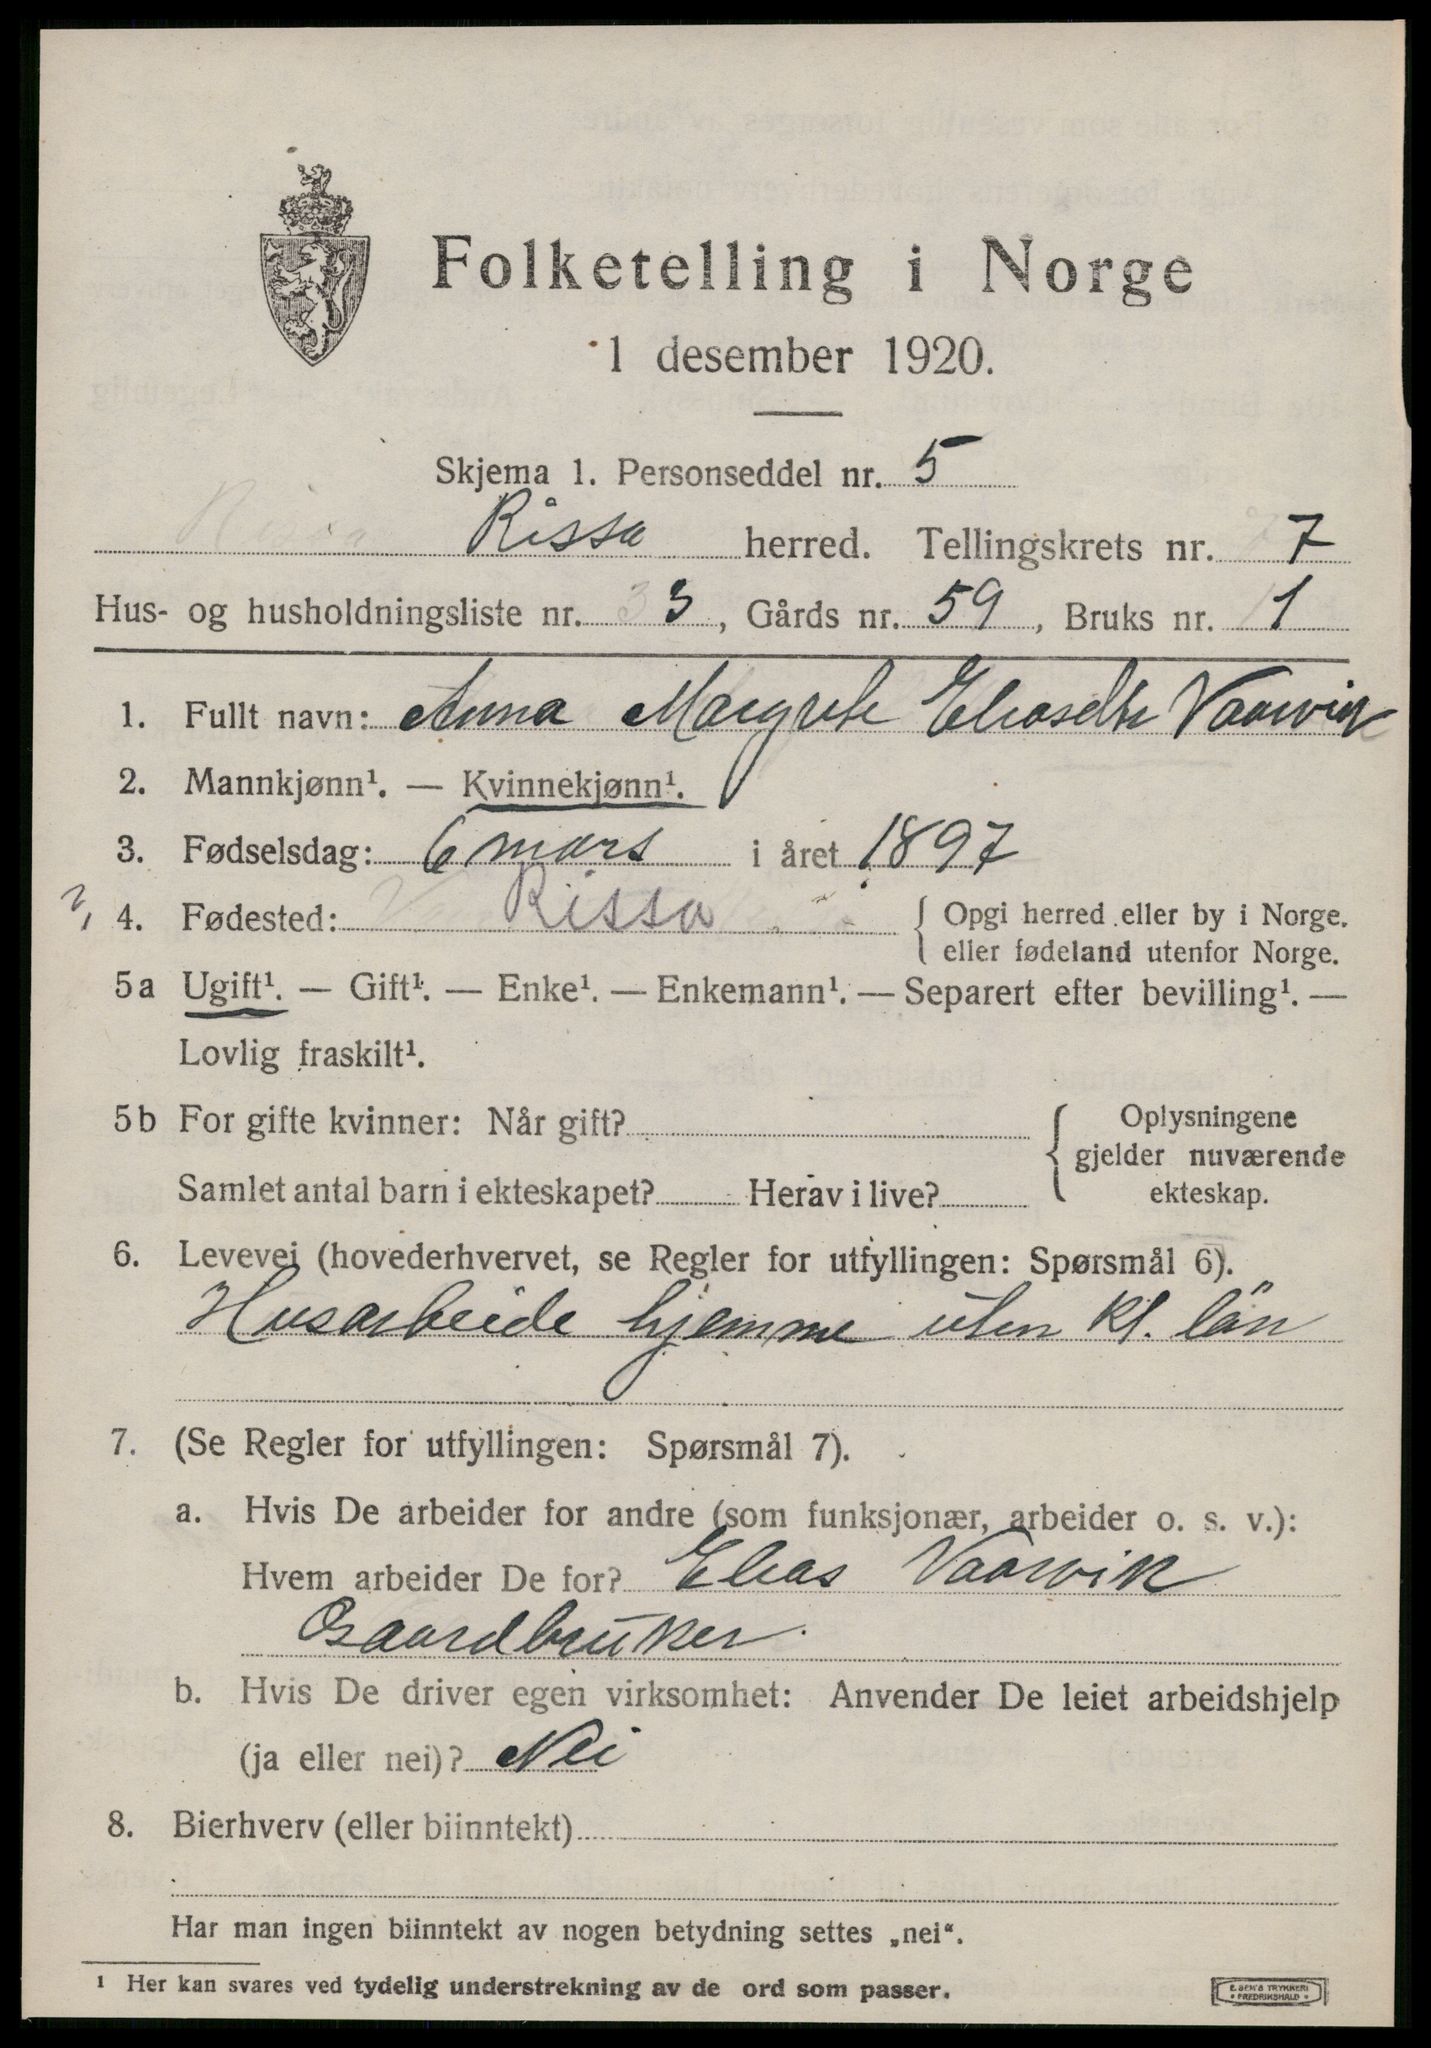 Folketelling i Norge
1 desember 1920.
Skjema 1. Personseddel nr. 5
Rissa herred. Tellingskrets nr. 7
Hus- og husholdningsliste nr. 3, Gårds nr. 59, Bruks nr. 1
1. Fullt navn: Anna Margrete Eliasdtr Vaarvik
2. Mannkjønn¹. — Kvinnekjønn¹.
3. Fødselsdag: 6 mars i året 1897
4. Fødested: Rissa { Opgi herred eller by i Norge.
eller fødeland utenfor Norge.
5a Ugift¹. — Gift¹. — Enke¹. — Enkemann¹. — Separert efter bevilling¹. —
Lovlig fraskilt¹.
5b For gifte kvinner: Når gift? { Oplysningene
gjelder nuværende
Samlet antal barn i ekteskapet? Herav i live? ekteskap.
6. Levevei (hovederhvervet, se Regler for utfyllingen: Spørsmål 6).
Husarbeide hjemme uten kl. løn
7. (Se Regler for utfyllingen: Spørsmål 7).
a. Hvis De arbeider for andre (som funksjonær, arbeider o. s. v.):
Hvem arbeider De for? Elias Vaarvik
Gaardbruker.
b. Hvis De driver egen virksomhet: Anvender De leiet arbeidshjelp
(ja eller nei)? Nei
8. Bierhverv (eller biinntekt)
Har man ingen biinntekt av nogen betydning settes „nei“.
¹ Her kan svares ved tydelig understrekning av de ord som passer.
E. SEM'S TRYKKERI
FREDRIKSHALD